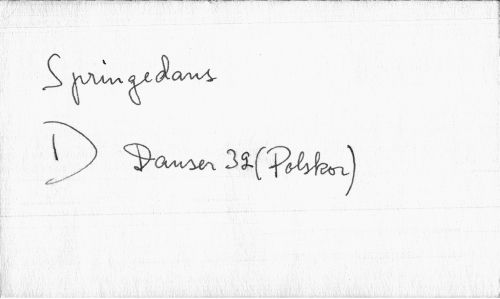 Springedans
D Danser 32 (Polskor)